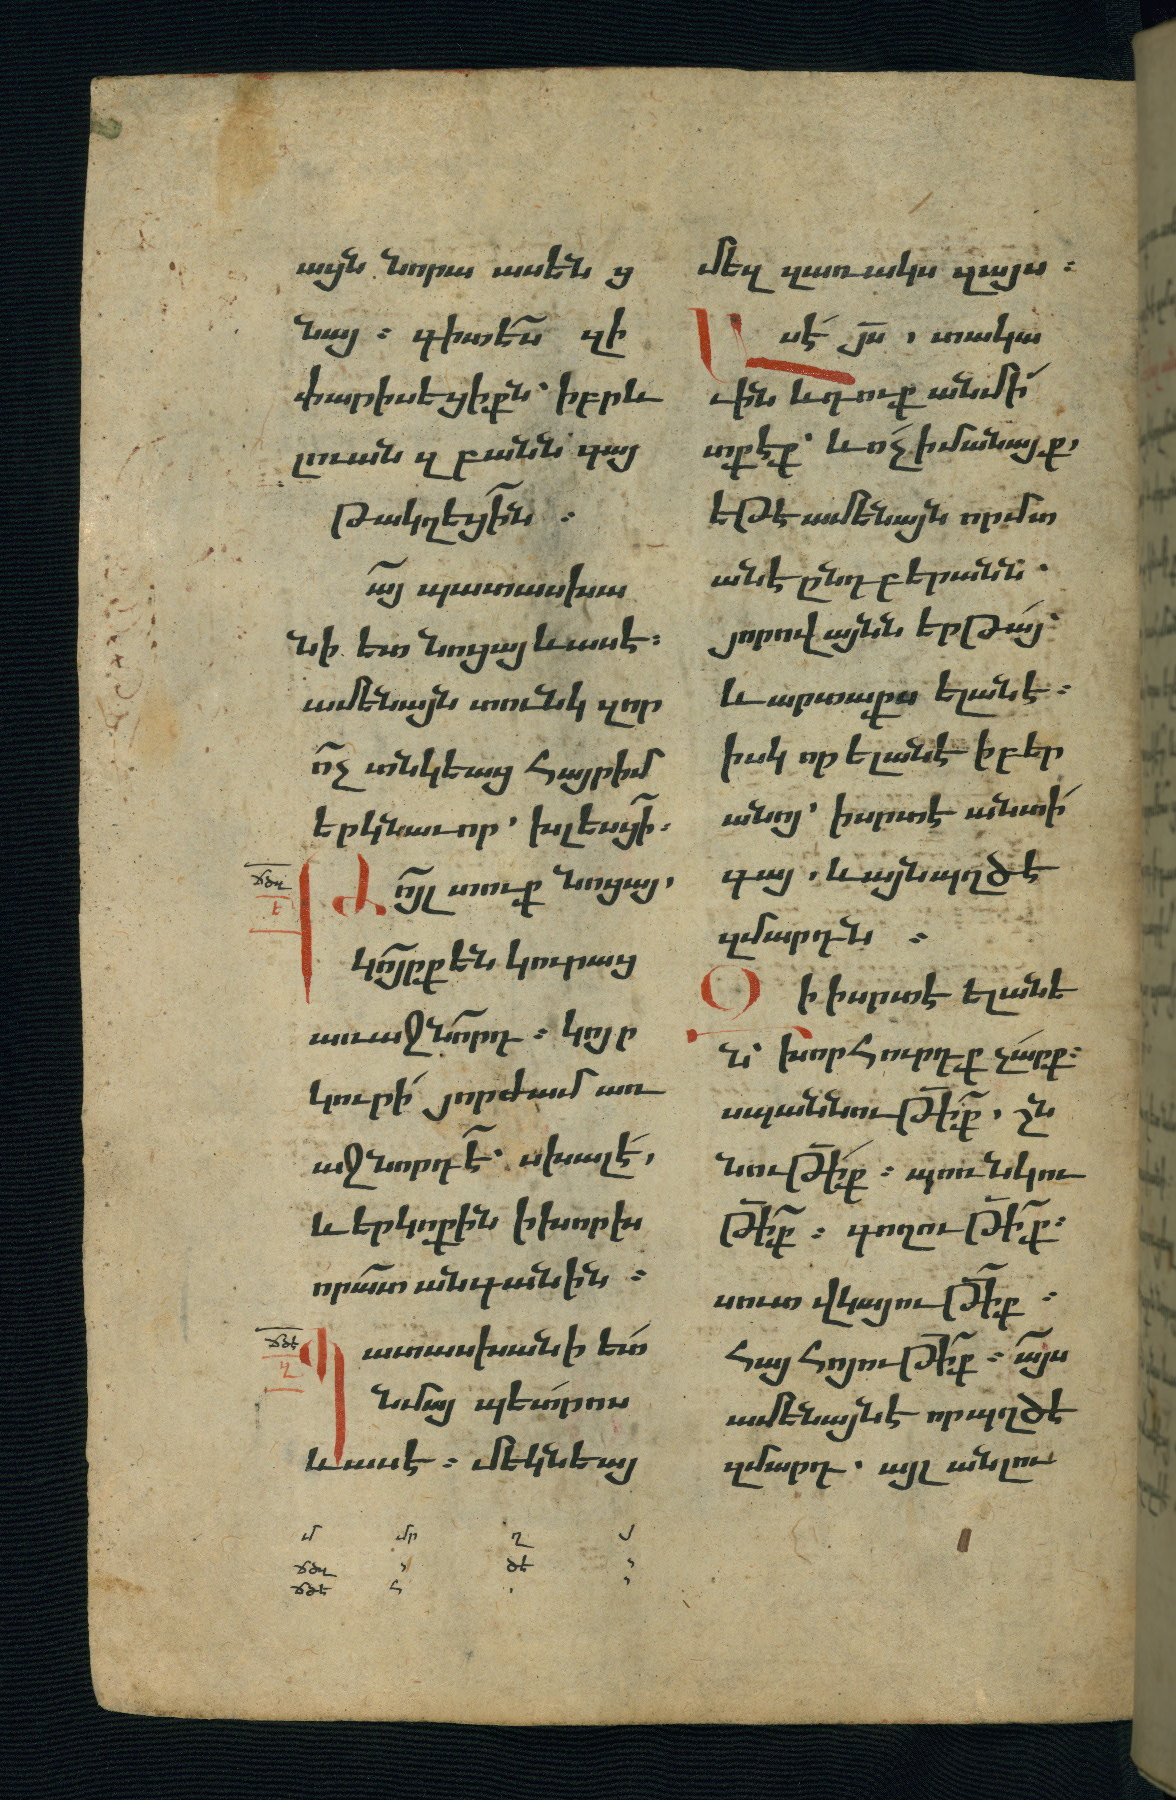 այն նորա ասեն ց
նայ ։ գիտե՞ս զի
փարիսեցիքն՝ իբրև
լուան զբանն՝ գայ
թակղեցին ։
այ պատասխա
նի ետ նոցայ և ասէ ։
ամենայն տունկ զոր
ոչ տնկեաց հայր իմ
երկնաւոր՝ խլեսցի ։
Թոյլ տուք նոցայ,
կոյրք են կուրաց
առաջնորդ ։ կոյր
կուրի յորժամ առ
աջնորդէ՝ սխալէ,
և երկոքին ի խորխ
որատ անգանին ։
Պատասխանի ետ
նմայ պետրոս
և ասէ ։ մեկնեայ
մեզ զառակս զայս ։
Ասէ յս , տակա
ւին և դուք անմի
տք էք՝ և ոչ իմանայք,
եթէ ամենայն որ մտ
անէ ընդ բերանն՝
յորովայնն երթայ՝
և արտաքս ելանէ ։
իսկ որ ելանէ ի բեր
անոյ՝ ի սրտէ անտի
գայ , և այն պղծէ
զմարդն ։
Զի ի սրտէ ելանե
ն՝ խորհուրդք չարք ։
սպանութիք , շն
նութիք ։ պոռնկու
թիք ։ գողութիք ։
սուտ վկայութիք ։
հայհոյութիք ։ այս
ամենայն է որ պղծէ
զմարդ , այլ անլու
ճծդ
է
ճծե
զ
մ մր ղ յ
ճծդ , ծե ,
ճծե հ . ,